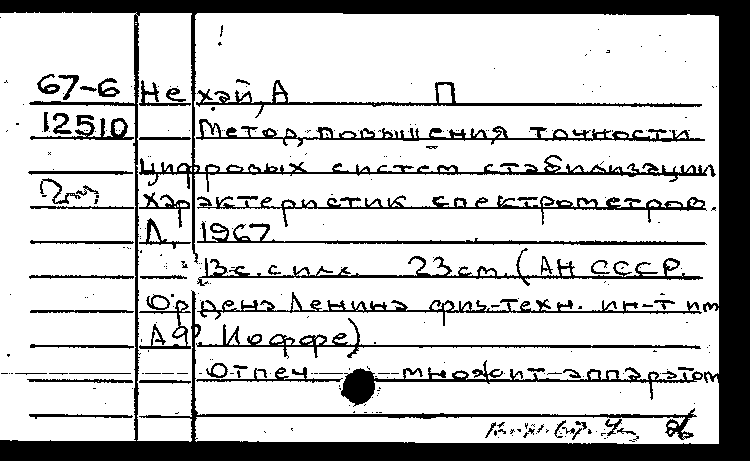 67-6 Нехай, А П
12510 Метод повышения точности
цифровых систем стабилизации
характеристик спектрометров.
Л., 1967.
13 с. с илл. 23 см. (АН СССР.
Ордена Ленина физ-техн. ин-т им
А Ф Иоффе)
Отпеч множит-аппаратом